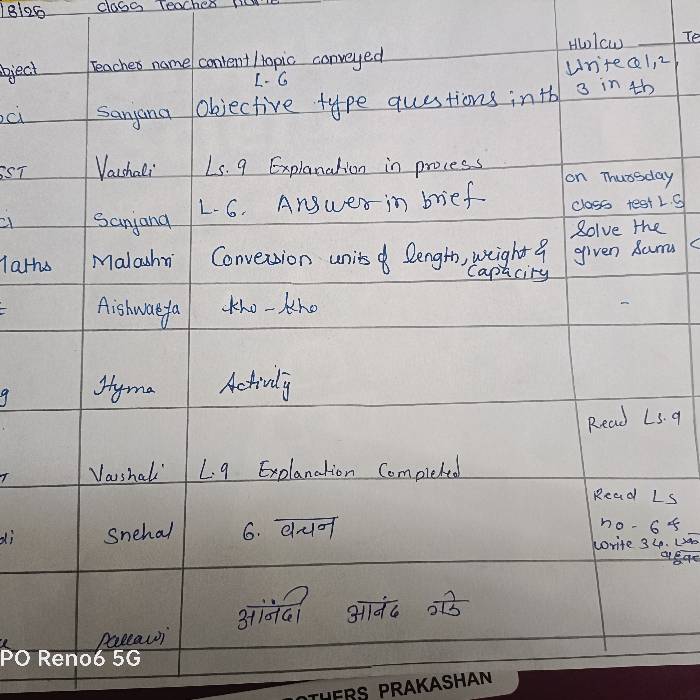 /8/25 Class Teacher name
bject Teacher name content/topic conveyed HW/CW Te
L-6 Write Q1,2,
ci Sanjana Objective type questions in tb 3 in tb
SST Vaishali Ls.9 Explanation in process
ci Sanjana L-6. Answer in brief on Thursday
class test L.5
Maths Malashri Conversion units of length, weight & Solve the
capacity given Sums
Aishwarya kho-kho -
g Hyma Activity
Read Ls.9
T Vaishali L.9 Explanation Completed
di Snehal 6. वचन Read Ls
no-6 &
write 34.
आनंदी आनंद गडे
Pallawi
PO Reno6 5G
OTHERS PRAKASHAN